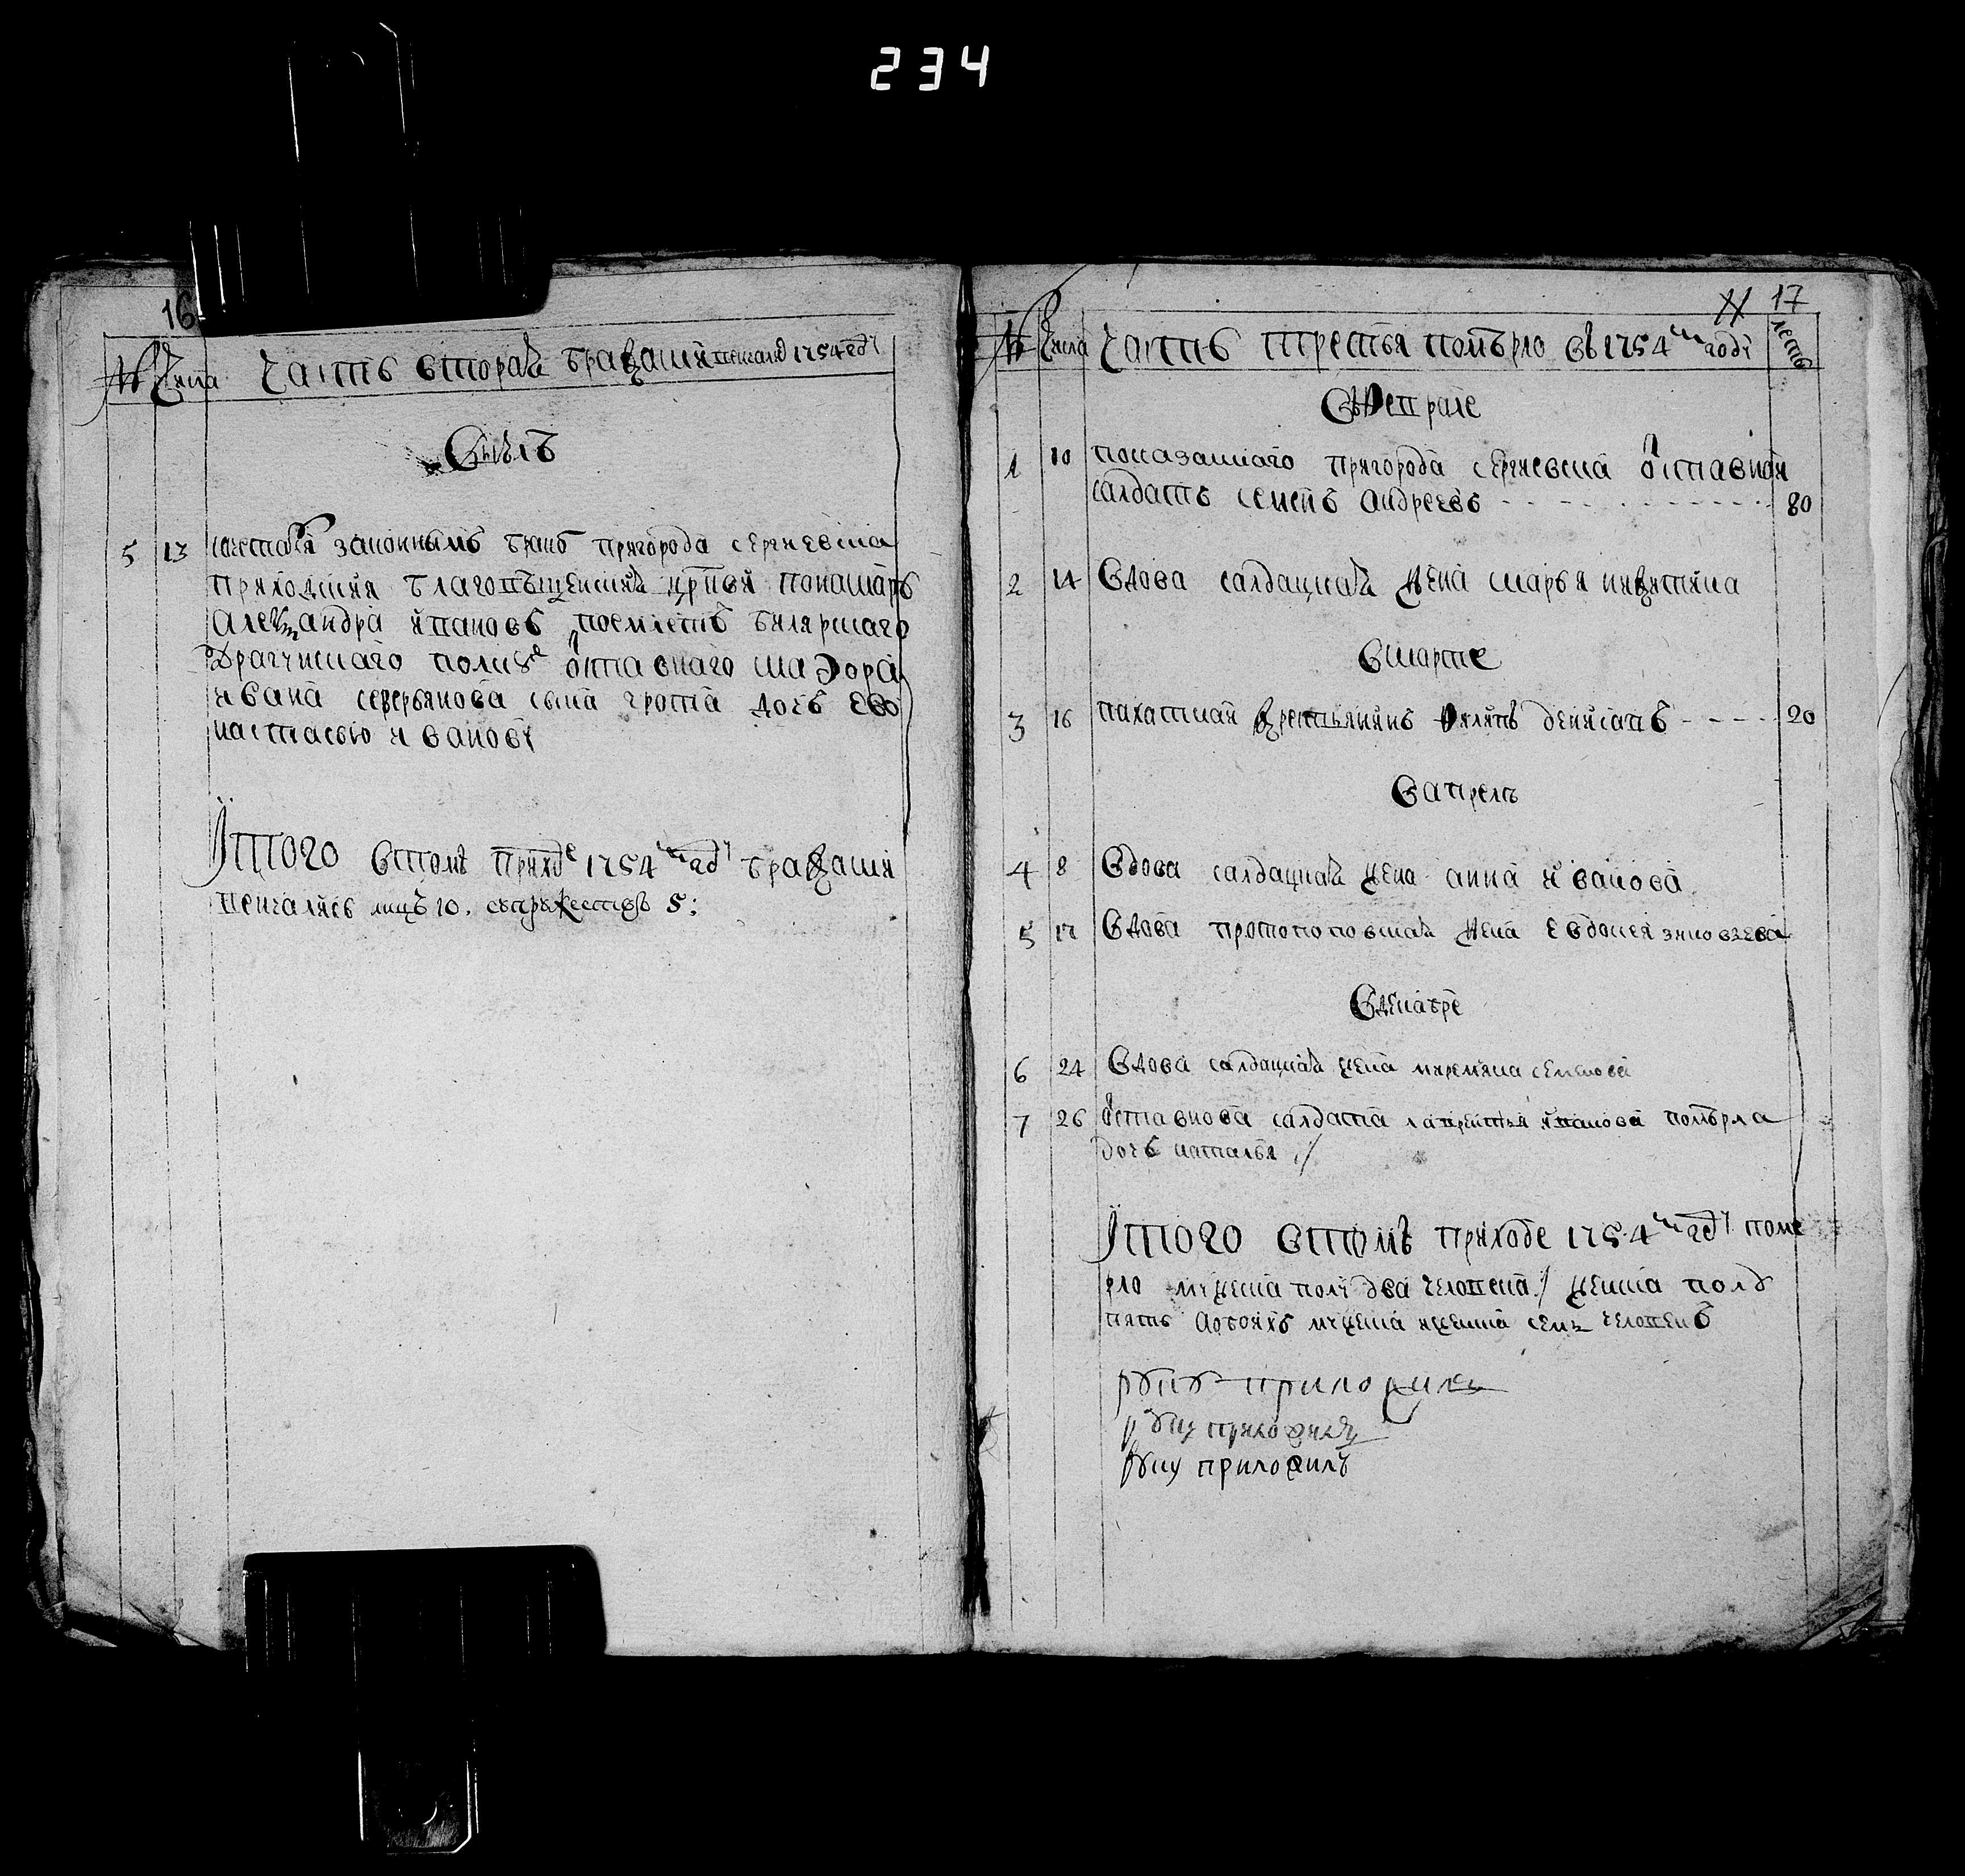 234
16
№ Числа Часть вторая бракващи венчано 1754 году
5 13 сочетался законнымъ бракъ пригорода сергиевска
приходския благовѣщенския цркви понамарь
александра ивановъ поемлетъ билярскаго
драгунскаго полку отставнаго маэора
ивана северьянова сына грота дочь ево
настасью иванову
Итого втомъ приходе 1754 году
венчались лицъ 10. супружествъ 5:
17
№ Числа Часть третья помѣрло въ 1754 м году лета
Въ Феврале
1 10 показаннаго пригорода сергиевска отставной
салдатъ семенъ андреевъ - - - 80
2 14 вдова салдацкая жена марья никитина
в марте
3 16 пахатной крестьянинъ филипъ денисовъ - - - - 20
в апреле
4 8 вдова салдацкая жена анна иванова
5 17 вдова протопоповская жена евдокея зиновеева
в декабре
6 24 вдова салдацкая жена семенова
7 26 отставнова салдата лаврентья иванова помѣрла
дочь наталья
Итого втомъ приходе 1754 м году поме
рло мужеска полу два человека женска полу
пять а обоихъ мужеска и женска семь человекъ
руку приложилъ
руку приложилъ
руку приложилъ